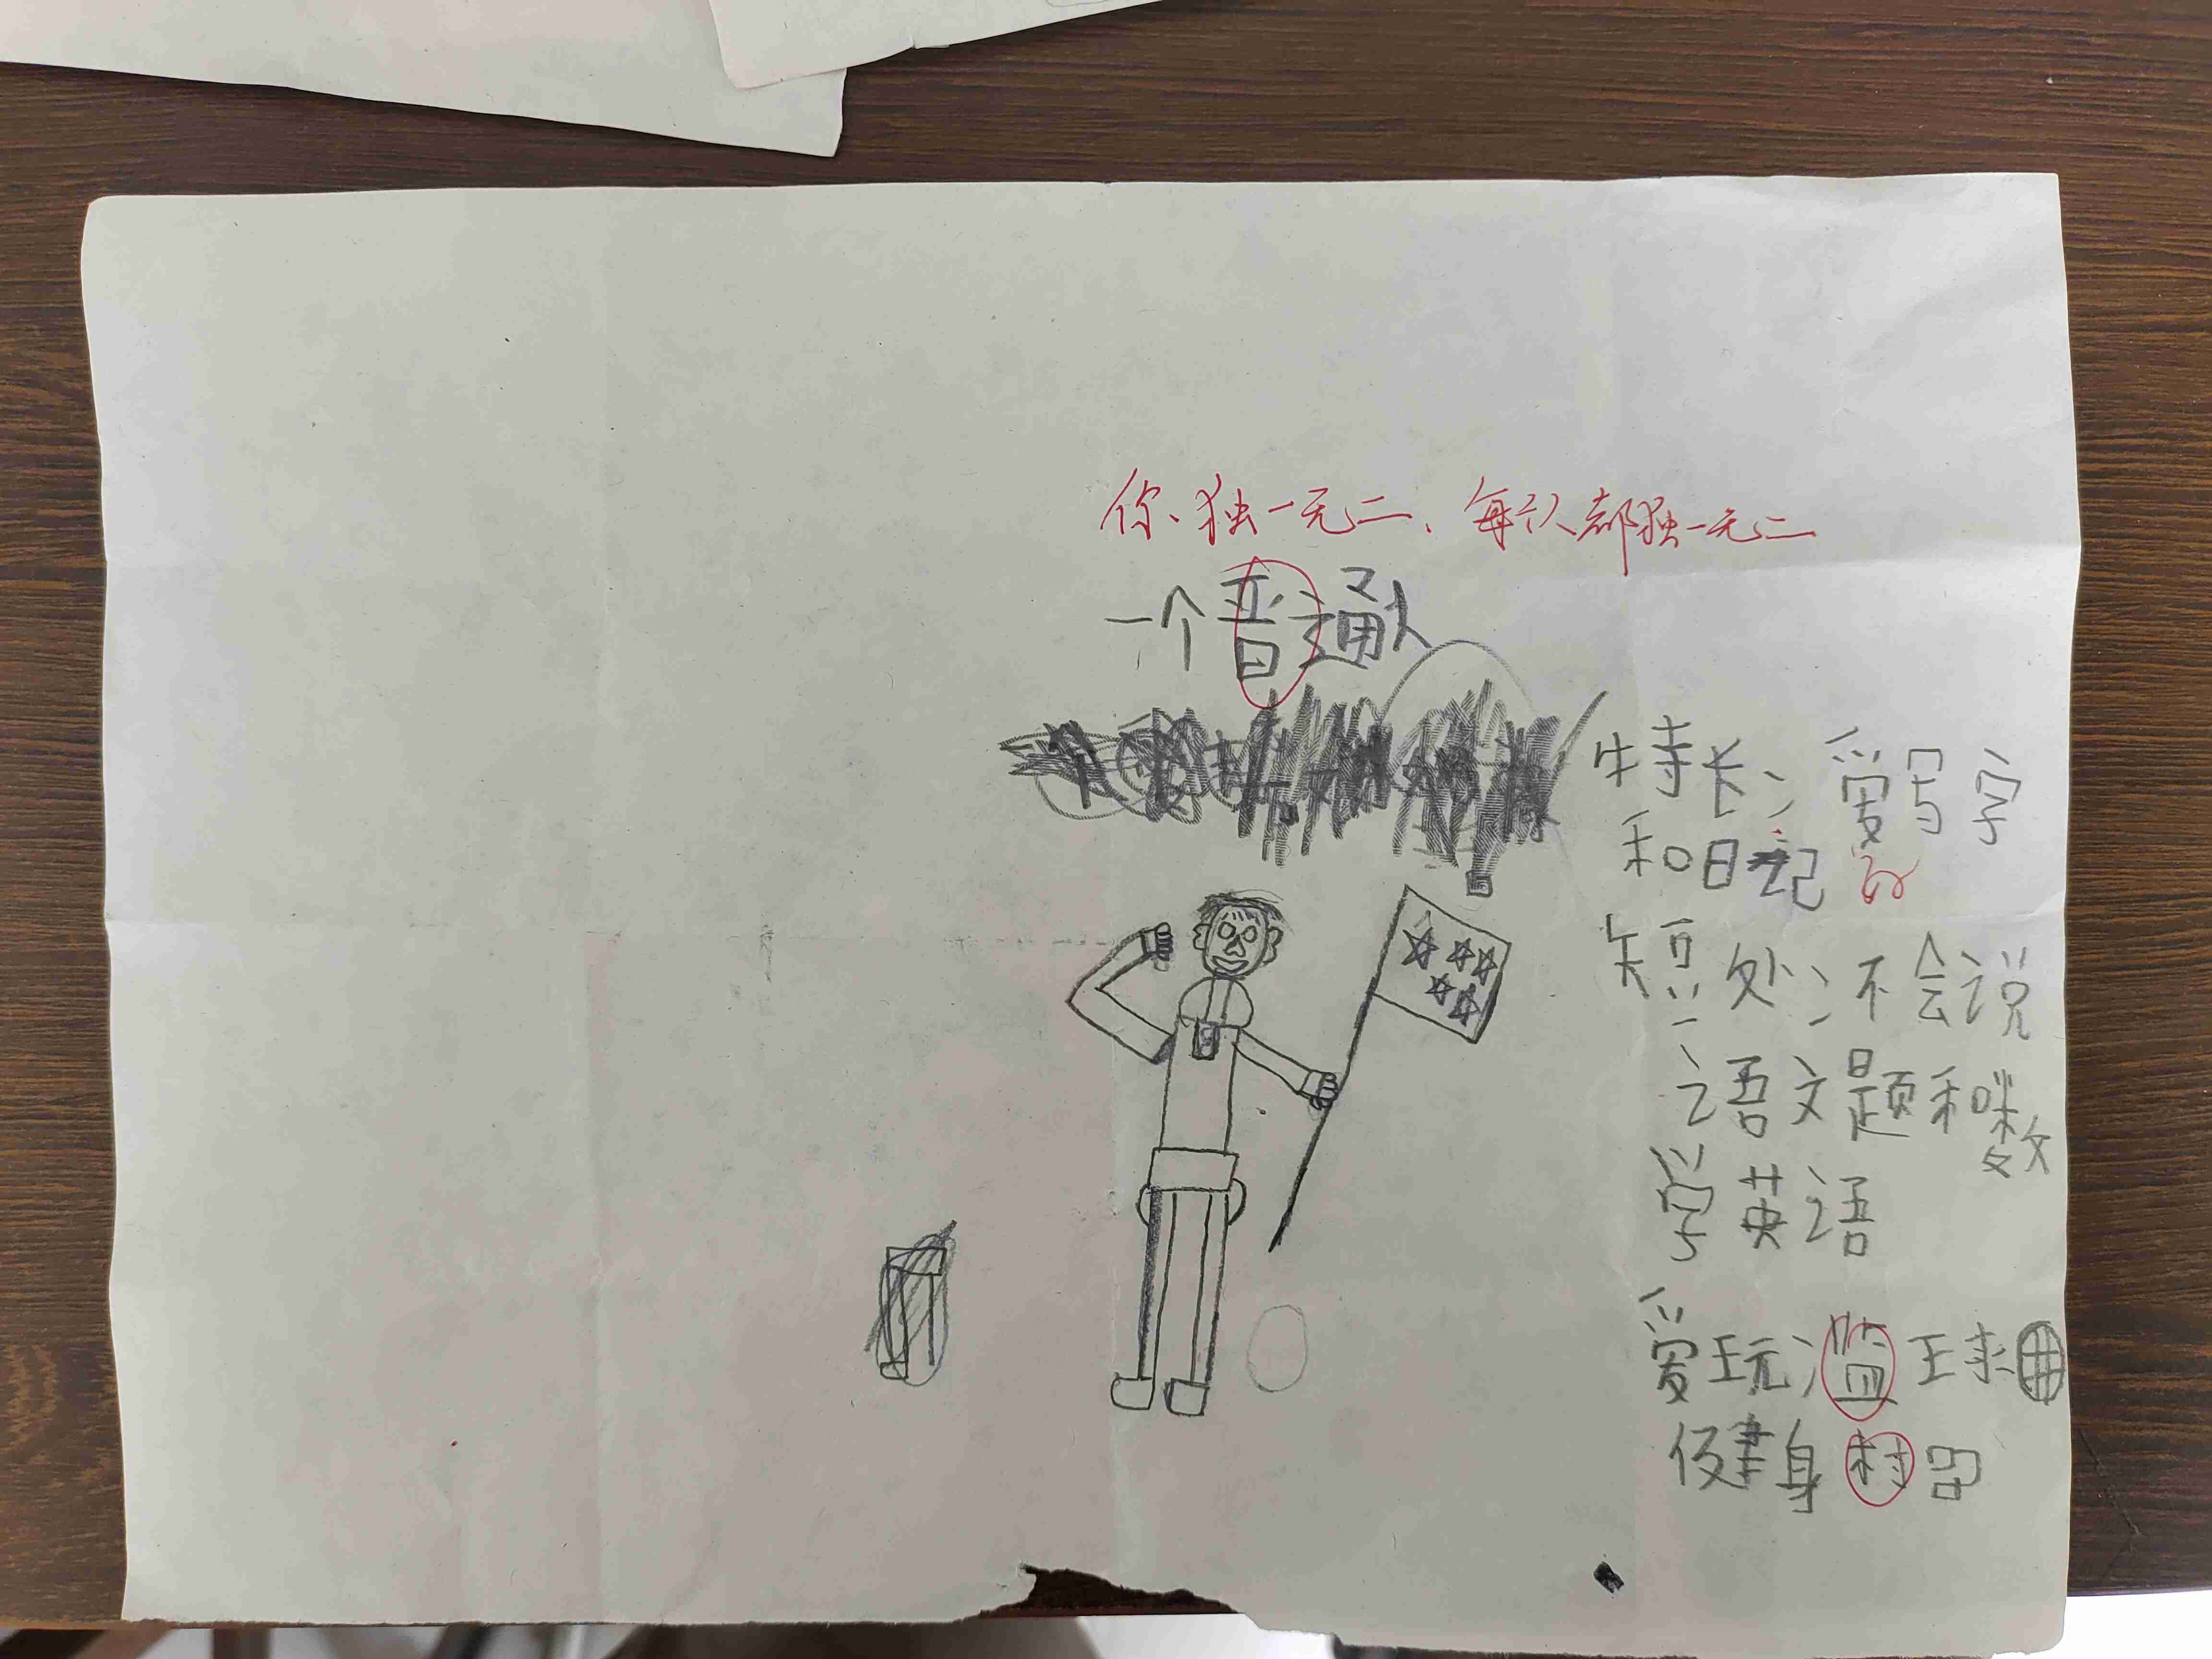 你、独一无二、每个人都独一无二
一个普通人
特长：爱写字
和日记
短处：不会说
语文题和数
学英语
爱玩：篮球
健身材